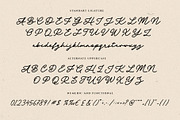 STANDARD LIGATURE
ABCDEFGHIJKLMN
OPQRSTUVWXYZ
abcdefghijklmnopqrstuvwxyz
ALTERNATE UPPERCASE
ABCDEFGHIJKLMN
OPQRSTUVWXYZ
NUMERIC AND FUNCTIONAL